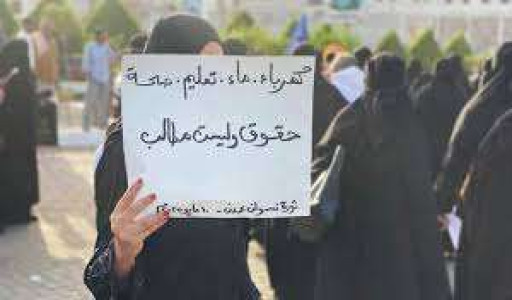 كهرباء . ماء . تعليم . صحة
حقوق وليست مطالب
ثورة نسوان عدن